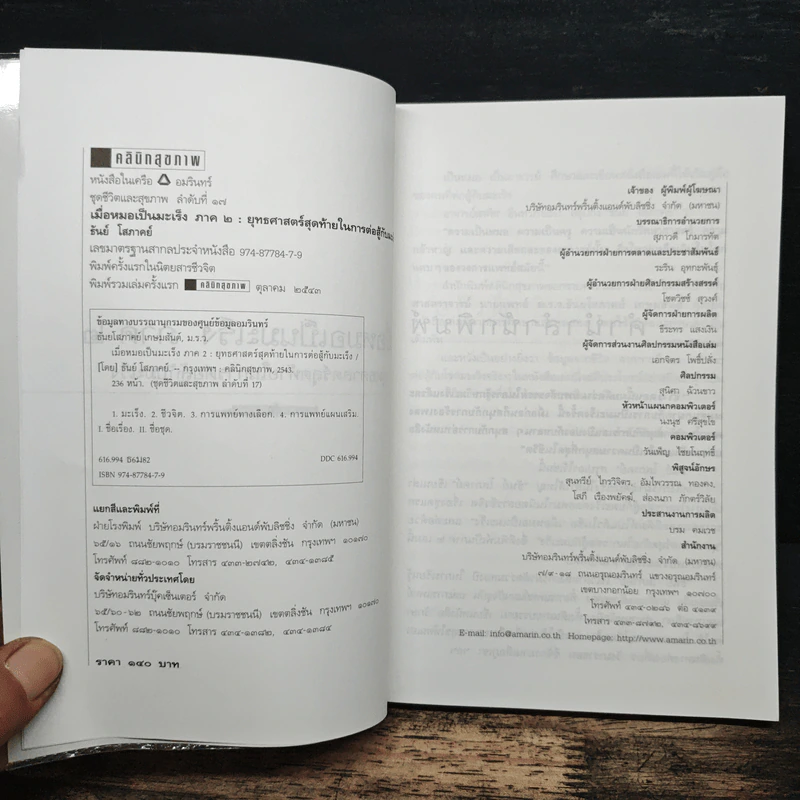 คลินิกสุขภาพ
หนังสือในเครือ อมรินทร์
ชุดชีวิตและสุขภาพ ลำดับที่ ๑๗
เมื่อหมอเป็นมะเร็ง ภาค ๒ : ยุทธศาสตร์สุดท้ายในการต่อสู้กับมะเ
ธันย์ โสภาคย์
เลขมาตรฐานสากลประจำหนังสือ 974-87784-7-9
พิมพ์ครั้งแรกในนิตยสารชีวจิต
พิมพ์รวมเล่มครั้งแรก คลินิกสุขภาพ ตุลาคม ๒๕๔๓
ข้อมูลทางบรรณานุกรมของศูนย์ข้อมูลอมรินทร์
ธันยโสภาคย์ เกษมสันต์, ม.ร.ว.
เมื่อหมอเป็นมะเร็ง ภาค 2 : ยุทธศาสตร์สุดท้ายในการต่อสู้กับมะเร็ง /
[โดย] ธันย์ โสภาคย์. -- กรุงเทพฯ : คลินิกสุขภาพ, 2543.
236 หน้า. (ชุดชีวิตและสุขภาพ ลำดับที่ 17)
1. มะเร็ง. 2. ชีวจิต. 3. การแพทย์ทางเลือก. 4. การแพทย์แผนเสริม.
I. ชื่อเรื่อง. II. ชื่อชุด.
616.994 ธ6ม182 DDC 616.994
ISBN 974-87784-7-9
แยกสีและพิมพ์ที่
ฝ่ายโรงพิมพ์ บริษัทอมรินทร์พริ้นติ้งแอนด์พับลิชชิ่ง จำกัด (มหาชน)
๖๕/๑๖ ถนนชัยพฤกษ์ (บรมราชชนนี) เขตตลิ่งชัน กรุงเทพฯ ๑๐๑๗๐
โทรศัพท์ ๘๘๒-๑๐๑๐ โทรสาร ๔๓๓-๒๗๔๒, ๔๓๔-๑๓๘๕
จัดจำหน่ายทั่วประเทศโดย
บริษัทอมรินทร์บุ๊คเซ็นเตอร์ จำกัด
๖๕/๖๐-๖๒ ถนนชัยพฤกษ์ (บรมราชชนนี) เขตตลิ่งชัน กรุงเทพฯ ๑๐๑๗๐
โทรศัพท์ ๘๘๒-๑๐๑๐ โทรสาร ๔๓๔-๑๓๘๒, ๔๓๔-๑๓๘๔
ราคา ๑๔๐ บาท
เจ้าของ ผู้พิมพ์ผู้โฆษณา
บริษัทอมรินทร์พริ้นติ้งแอนด์พับลิชชิ่ง จำกัด (มหาชน)
บรรณาธิการอำนวยการ
สุภาวดี โกมารทัต
ผู้อำนวยการฝ่ายการตลาดและประชาสัมพันธ์
ระริน อุทกะพันธุ์
ผู้อำนวยการฝ่ายศิลปกรรมสร้างสรรค์
โชควิชช์ สุวงศ์
ผู้จัดการฝ่ายการผลิต
ธีระพร แสงเงิน
ผู้จัดการส่วนงานศิลปกรรมหนังสือเล่ม
เอกจิตร โพธิ์ปลั่ง
ศิลปกรรม
สุนิศา ฉ้วนขาว
หัวหน้าแผนกคอมพิวเตอร์
นงนุช ศรีสุขโข
คอมพิวเตอร์
วันเพ็ญ ไชยโนฤทธิ์
พิสูจน์อักษร
สุนทรีย์ ไกรวิจิตร, อัมไพวรรณ ทองคง,
โสภี เรืองพยัคฆ์, ส่องนภา ภักตร์วิลัย
ประสานงานการผลิต
บรม คมเวช
สำนักงาน
บริษัทอมรินทร์พริ้นติ้งแอนด์พับลิชชิ่ง จำกัด (มหาชน)
๗/๙-๑๘ ถนนอรุณอมรินทร์ แขวงอรุณอมรินทร์
เขตบางกอกน้อย กรุงเทพฯ ๑๐๗๐๐
โทรศัพท์ ๔๓๔-๐๒๘๖ ต่อ ๔๑๓๙
โทรสาร ๔๓๔-๘๗๙๒, ๔๓๔-๘๖๙๙
E-mail: info@amarin.co.th Homepage: http://www.amarin.co.th